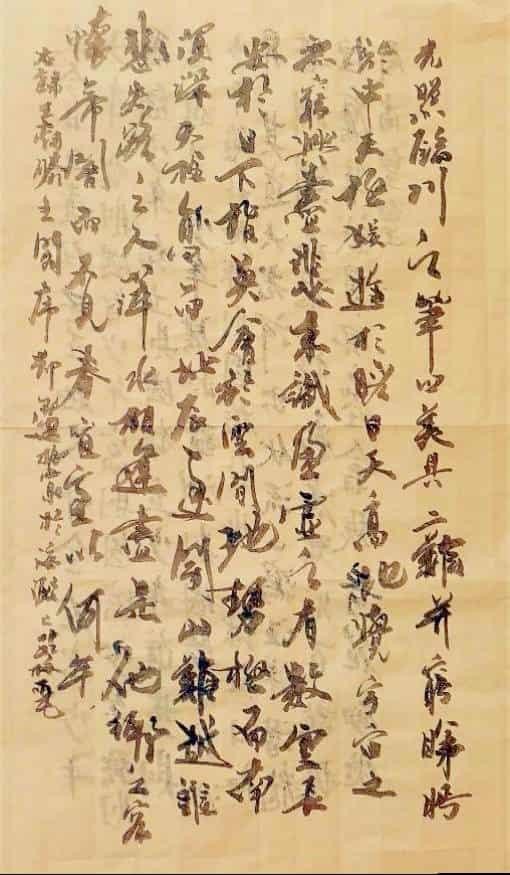 光照臨川之筆四美具二難并窮睇眄
於中天極娛遊於暇日天高地迥覺宇宙之
無窮興盡悲來識盈虛之有數望長
安於日下指吳會於雲間地勢極而南
溟深天柱高而北辰遠關山難越誰
悲失路之人萍水相逢盡是他鄉之客
懷帝閽而不見奉宣室以何年
右錄王勃滕王閣序